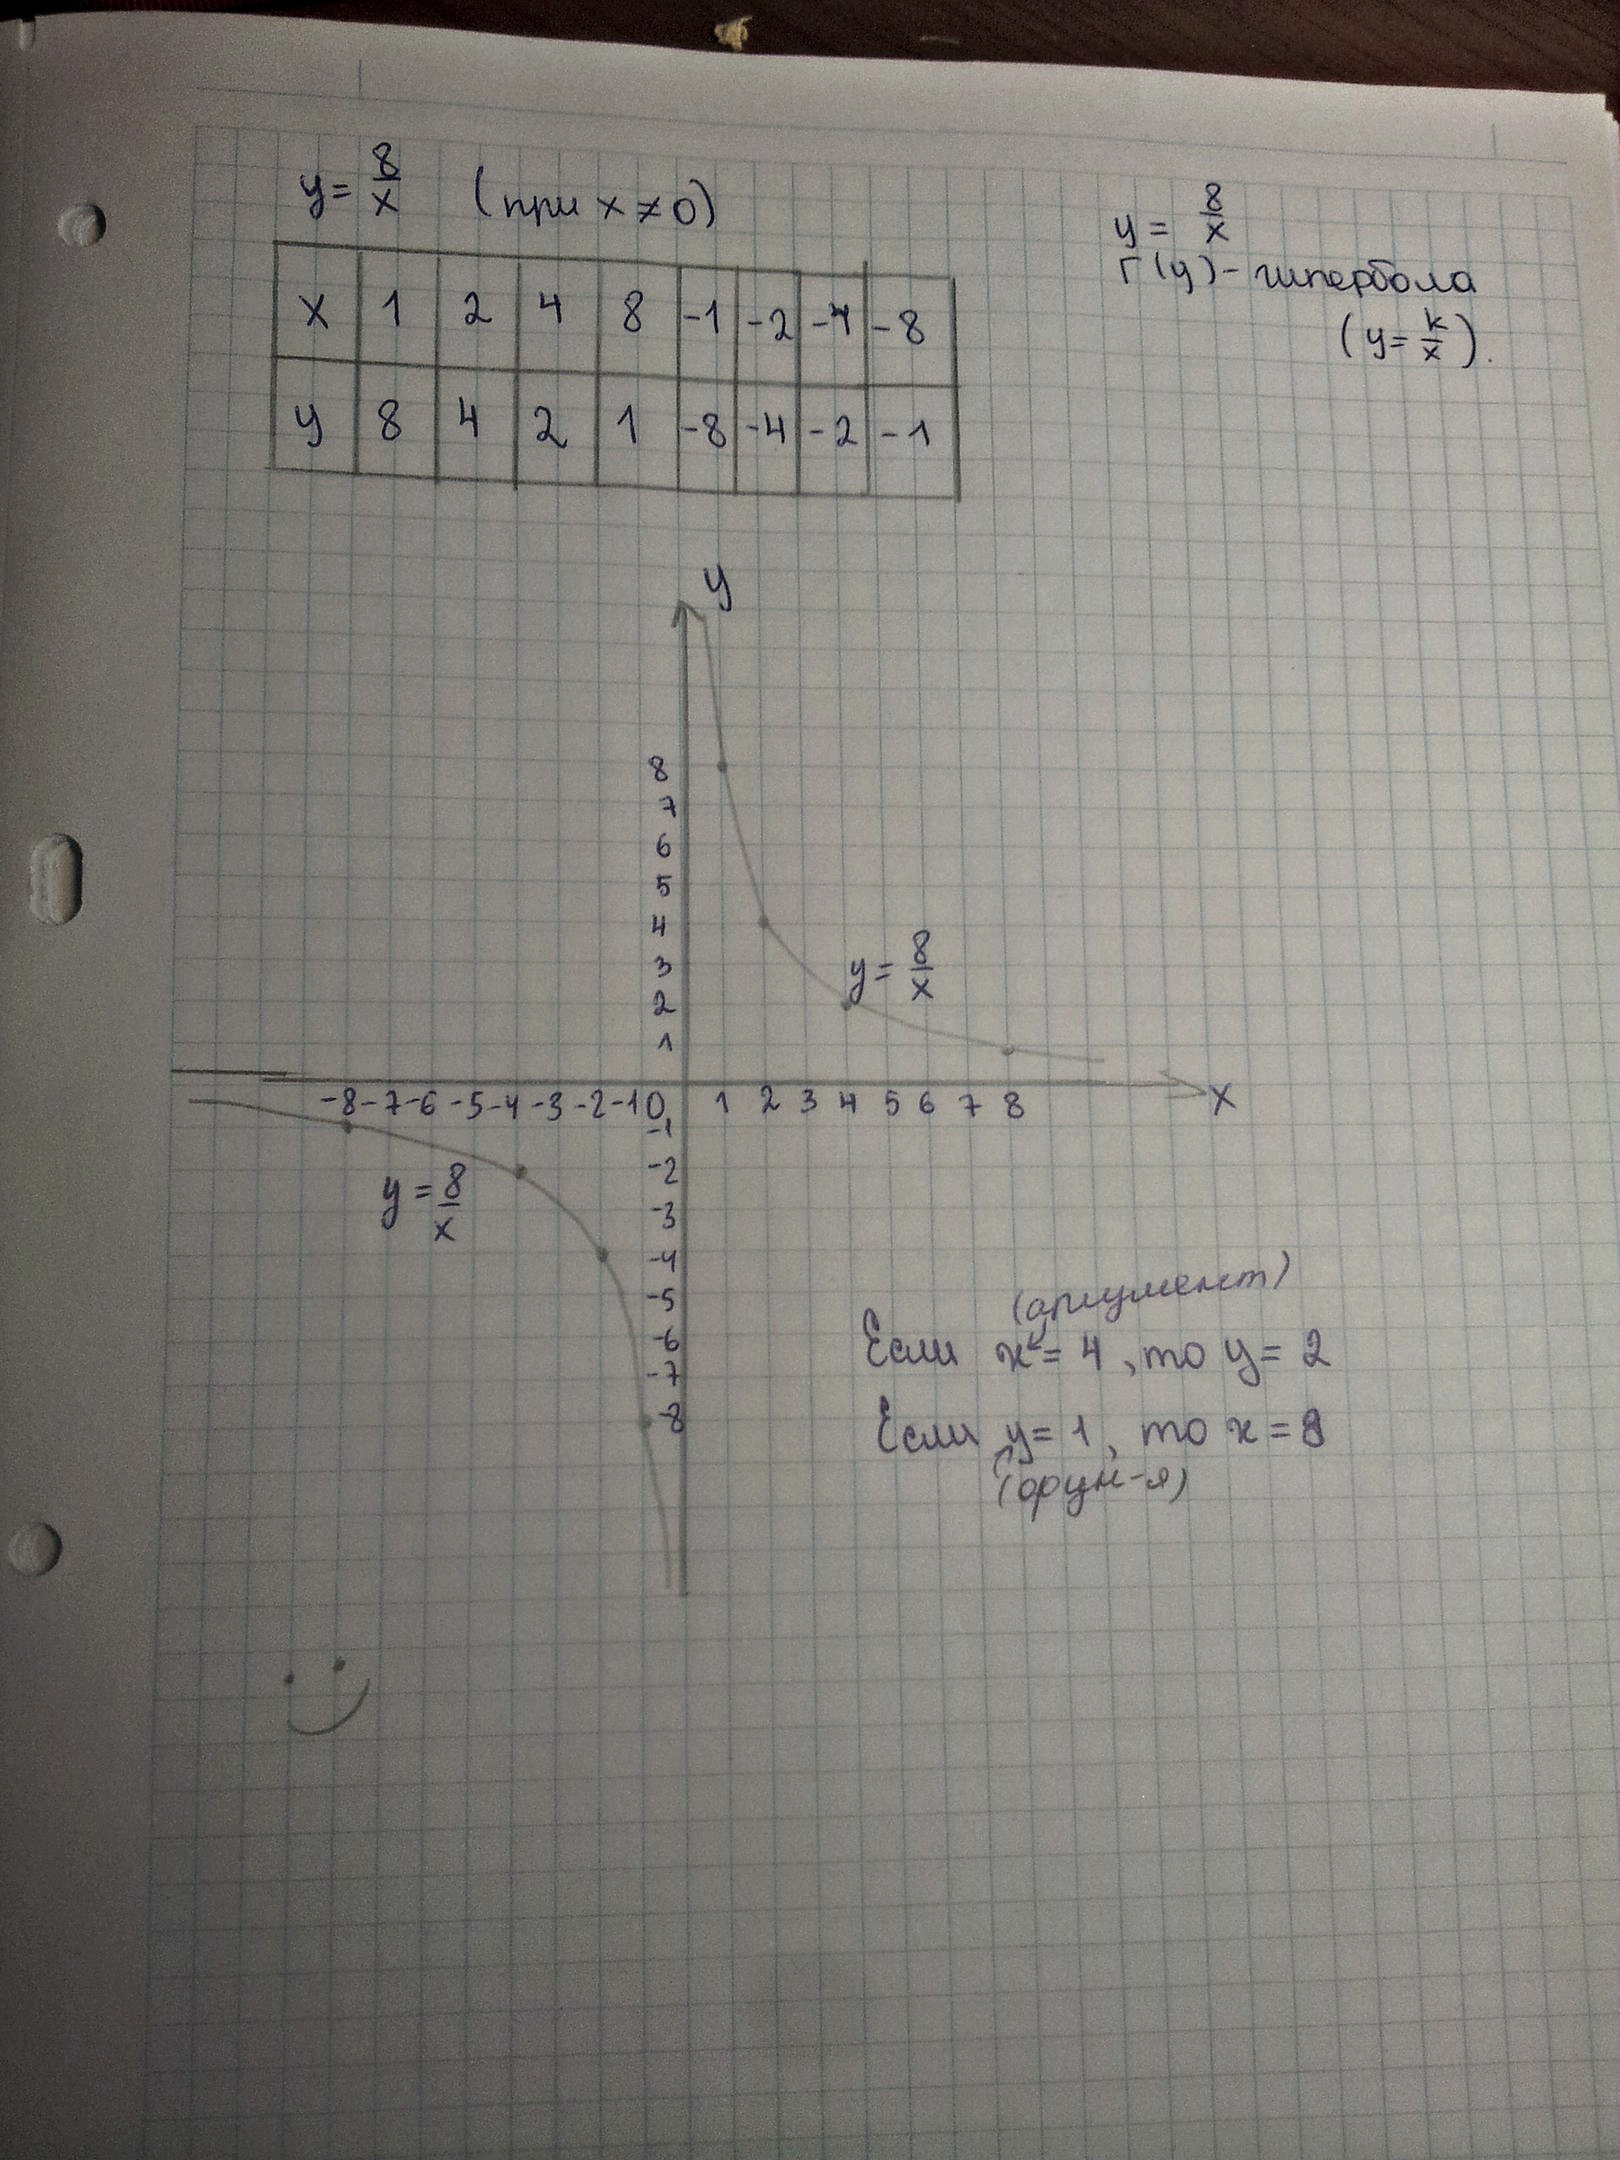 y = 8/x (при x ≠ 0)
y = 8/x
Г(y) - гипербола
(y = k/x).
x 1 2 4 8 -1 -2 -4 -8
y 8 4 2 1 -8 -4 -2 -1
y
8
7
6
5
4
3
2
1
y = 8/x
-8 -7 -6 -5 -4 -3 -2 -1 0 1 2 3 4 5 6 7 8 x
-1
-2
-3
-4
-5
-6
-7
-8
y = 8/x
(аргумент)
Если x = 4, то y = 2
Если y = 1, то x = 8
(функ-я)